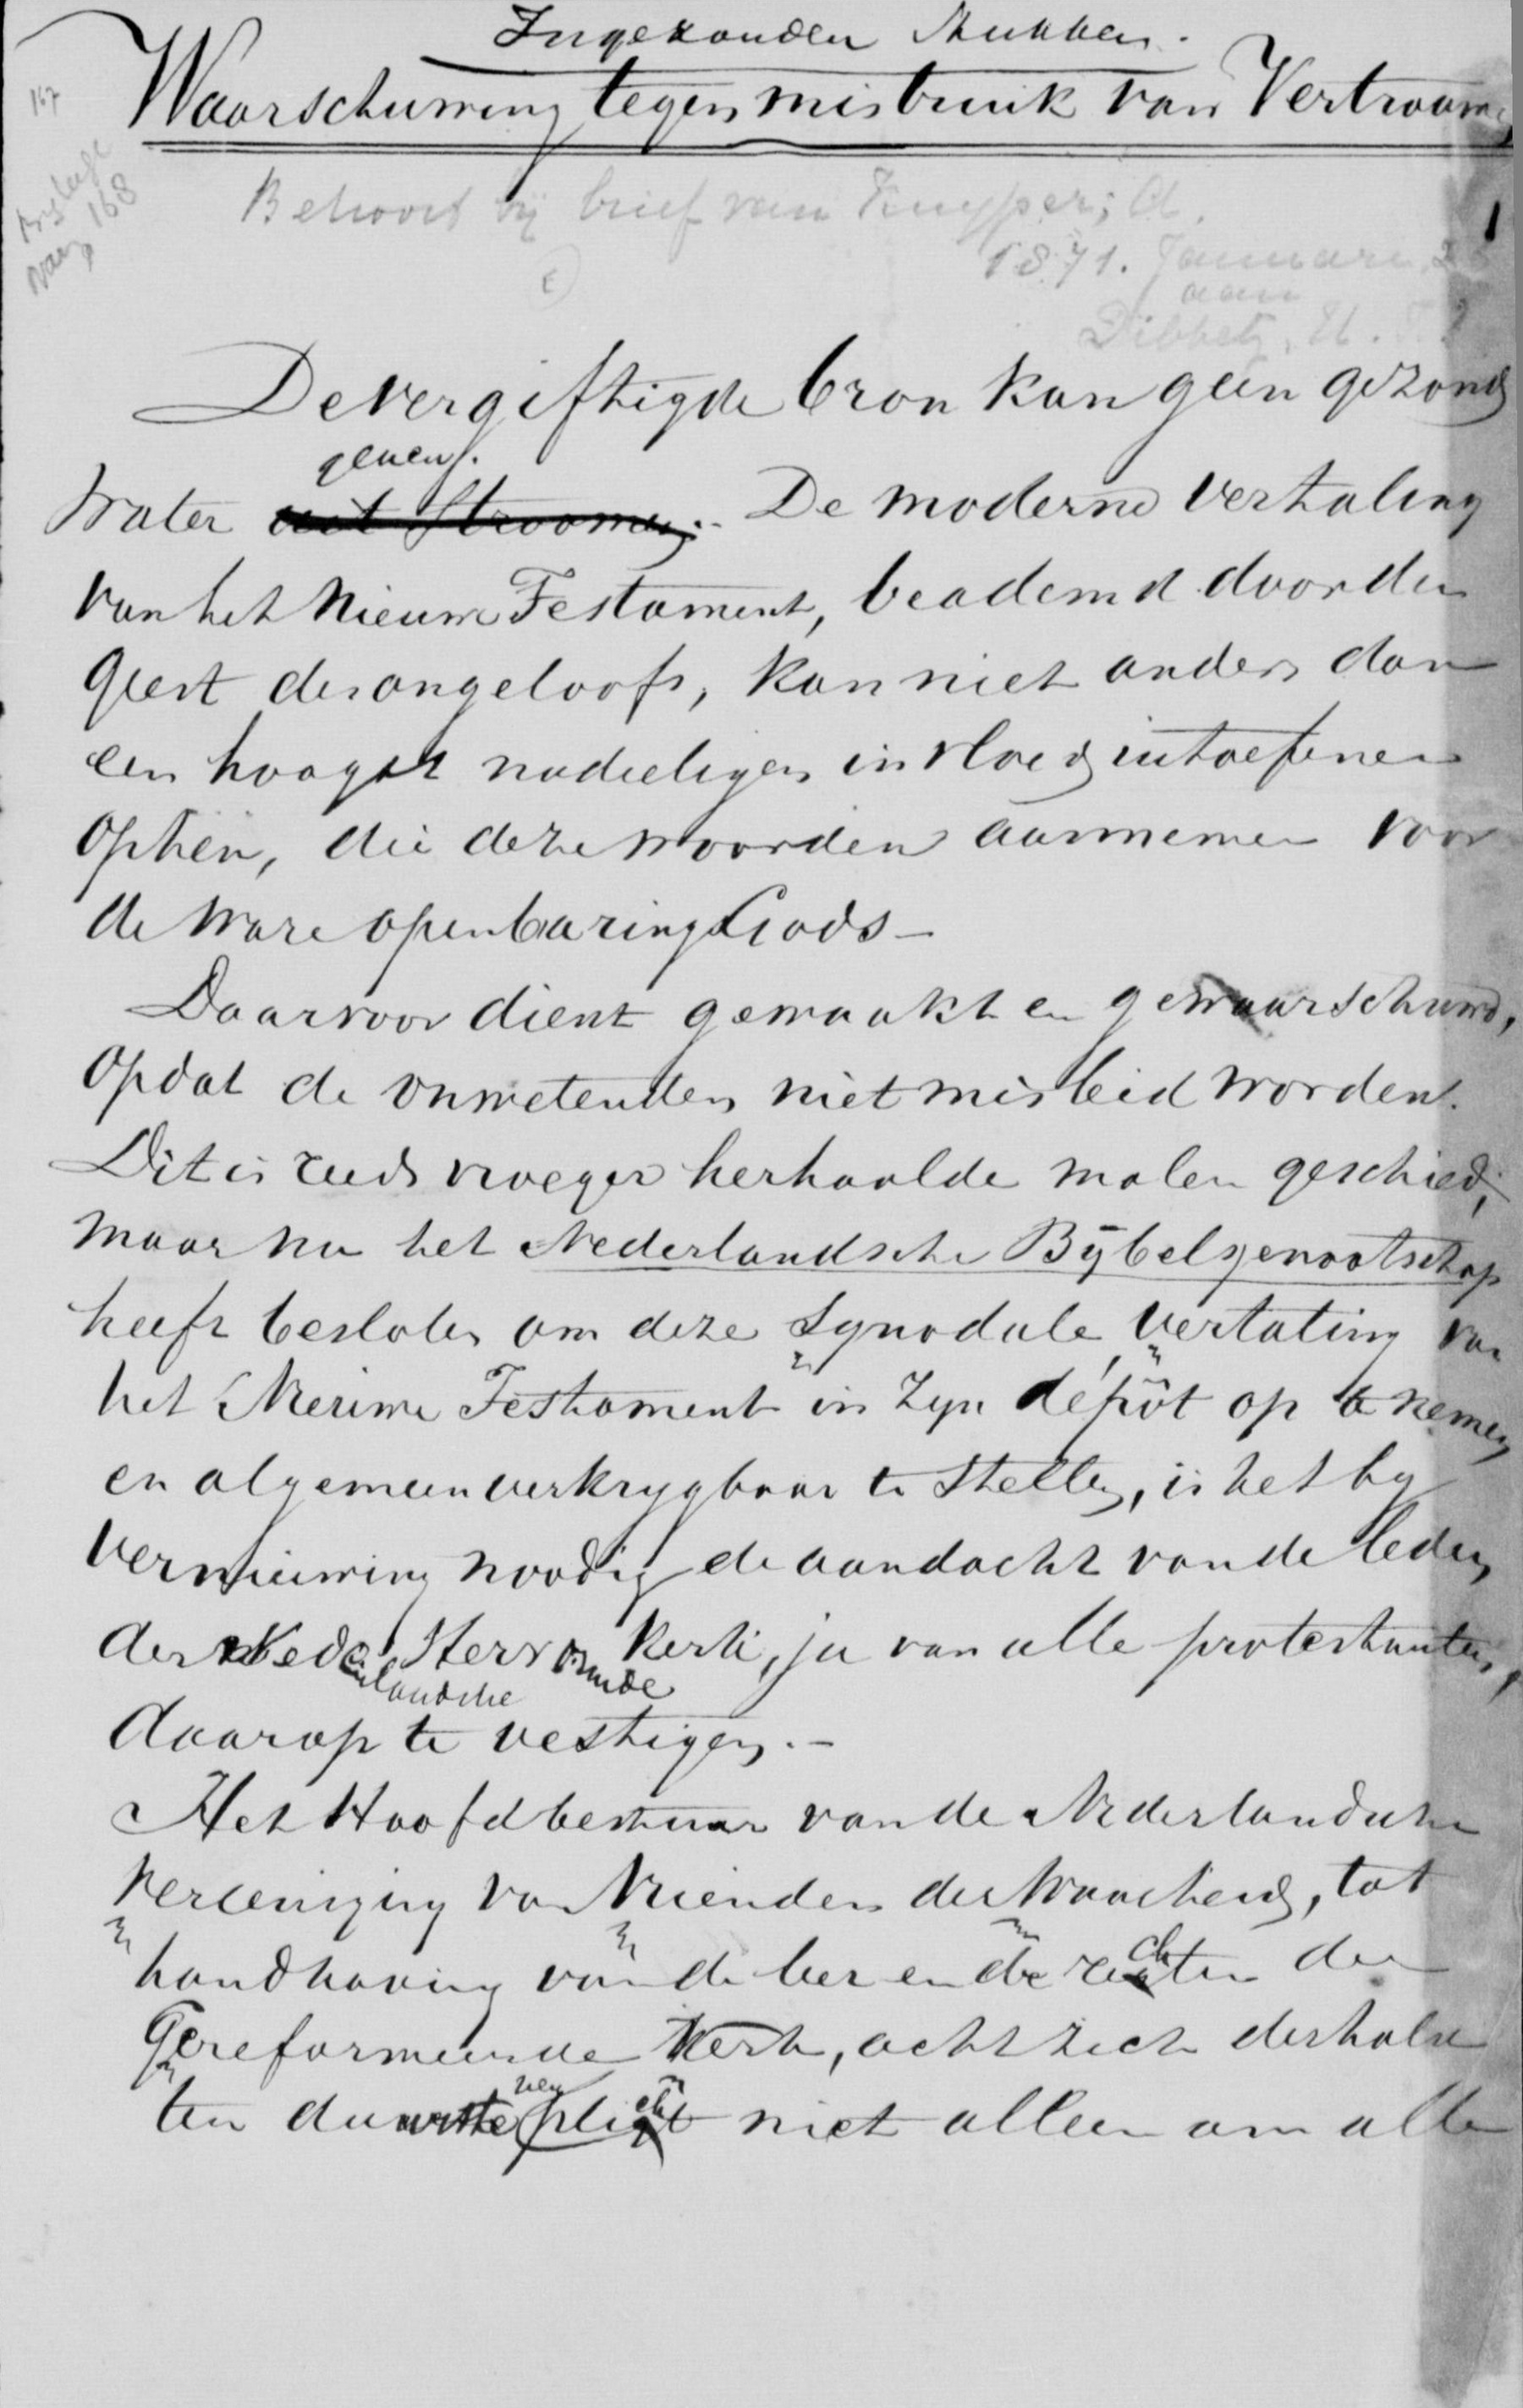 Ingezonden Stukken.
Waarschuwing tegen misbruik van Vertrouwen
167
Bijlage
van 168
Behoort bij brief van Kuyper, A.
1871. Januari 2
aan
Dibbetz, H.
1
De vergiftigde bron kan geen gezond
geven.
Water uit stroomen.- De moderne vertaling
van het Nieuwe Testament, beademd door den
geest des ongeloofs, kan niet anders dan
een hoogst nadeeligen invloed uitoefenen
op hen, die deze woorden aannemen voor
de ware openbaring Gods -
Daarvoor dient gewaakt en gewaarschuwd,
opdat de onwetenden niet misleid worden.
Dit is reeds vroeger herhaalde malen geschied;
maar nu het Nederlandsche Bijbelgenootschap
heeft besloten om deze Synodale vertaling van
het Nieuwe Testament in zyn dépôt op te nemen
en algemeen verkrygbaar te stellen, is het by
vernieuwing noodig de aandacht van de leden
der Nederlandsche Hervormde Kerk, ja van alle protestanten,
daarop te vestigen.-
Het Hoofdbestuur van de Nederlandsche
Vereeniging van Vrienden der Waarheid, tot
handhaving van de leer en de rechten der
Gereformeerde Kerk, acht zich derhalve
ten duurste verplicht niet alleen om alle